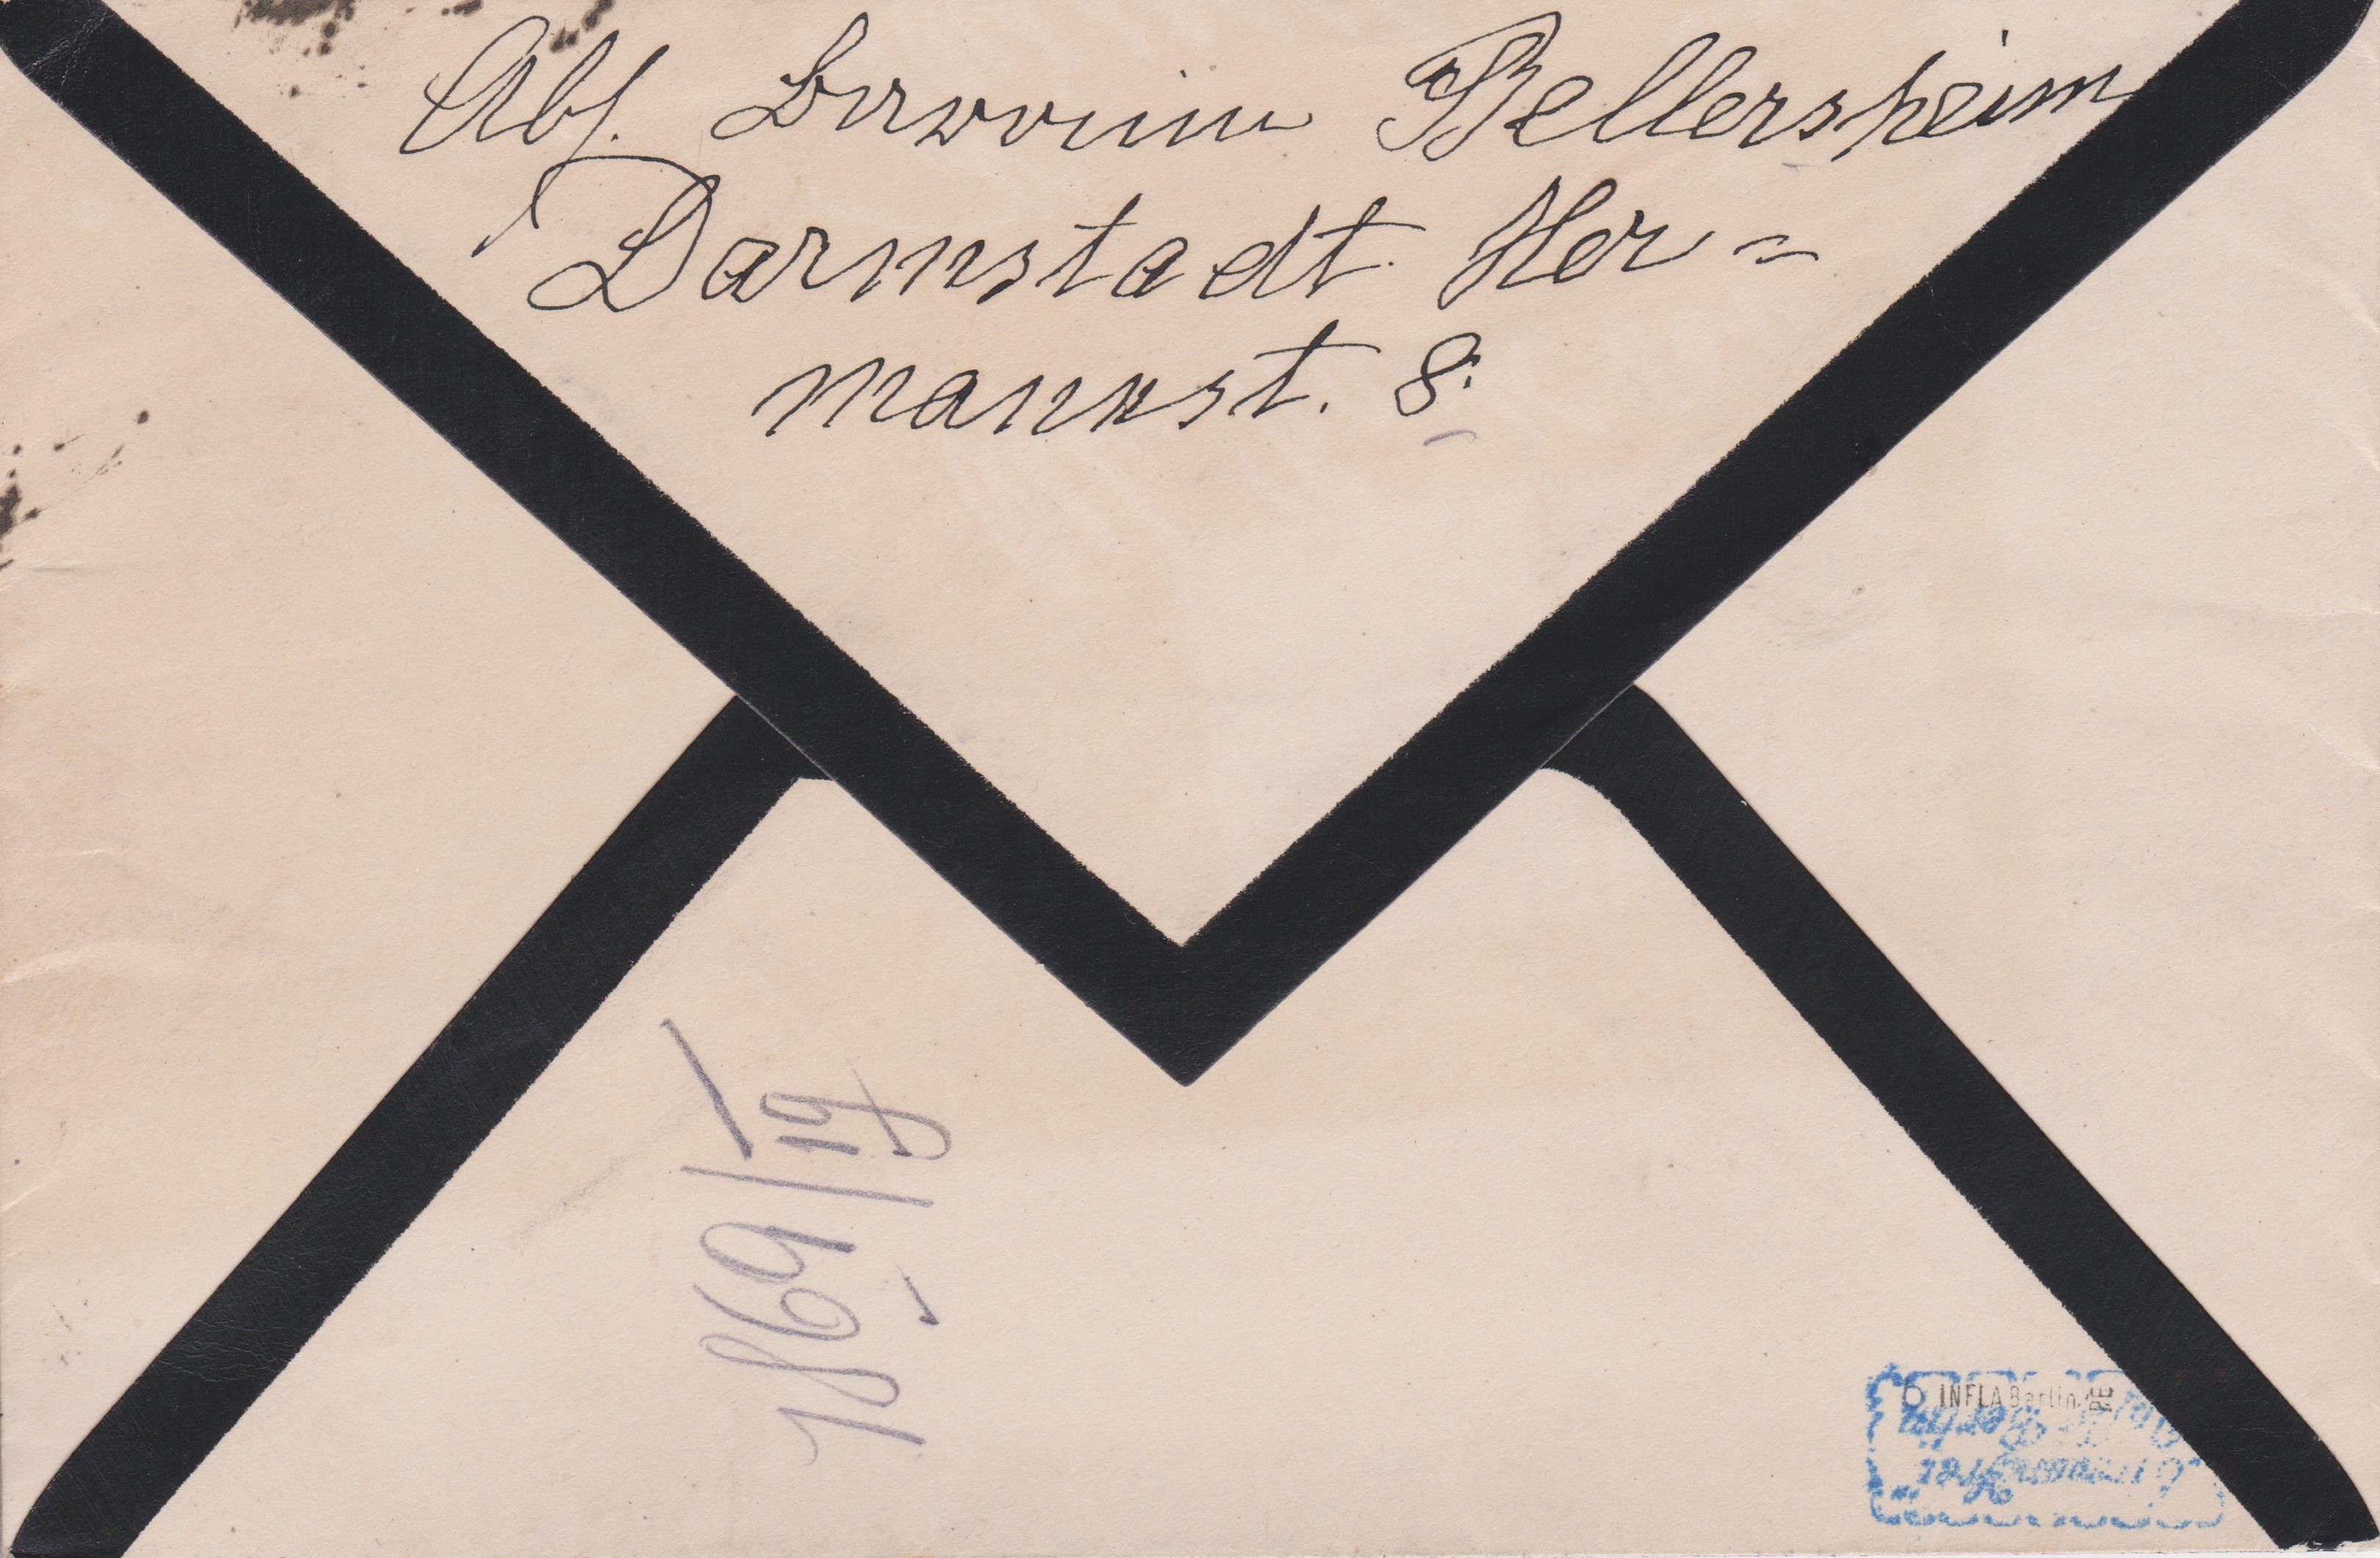 Abs. Bellersheim
Darmstadt. Her=
mannst. 8.
1869/
INFLA Berlin